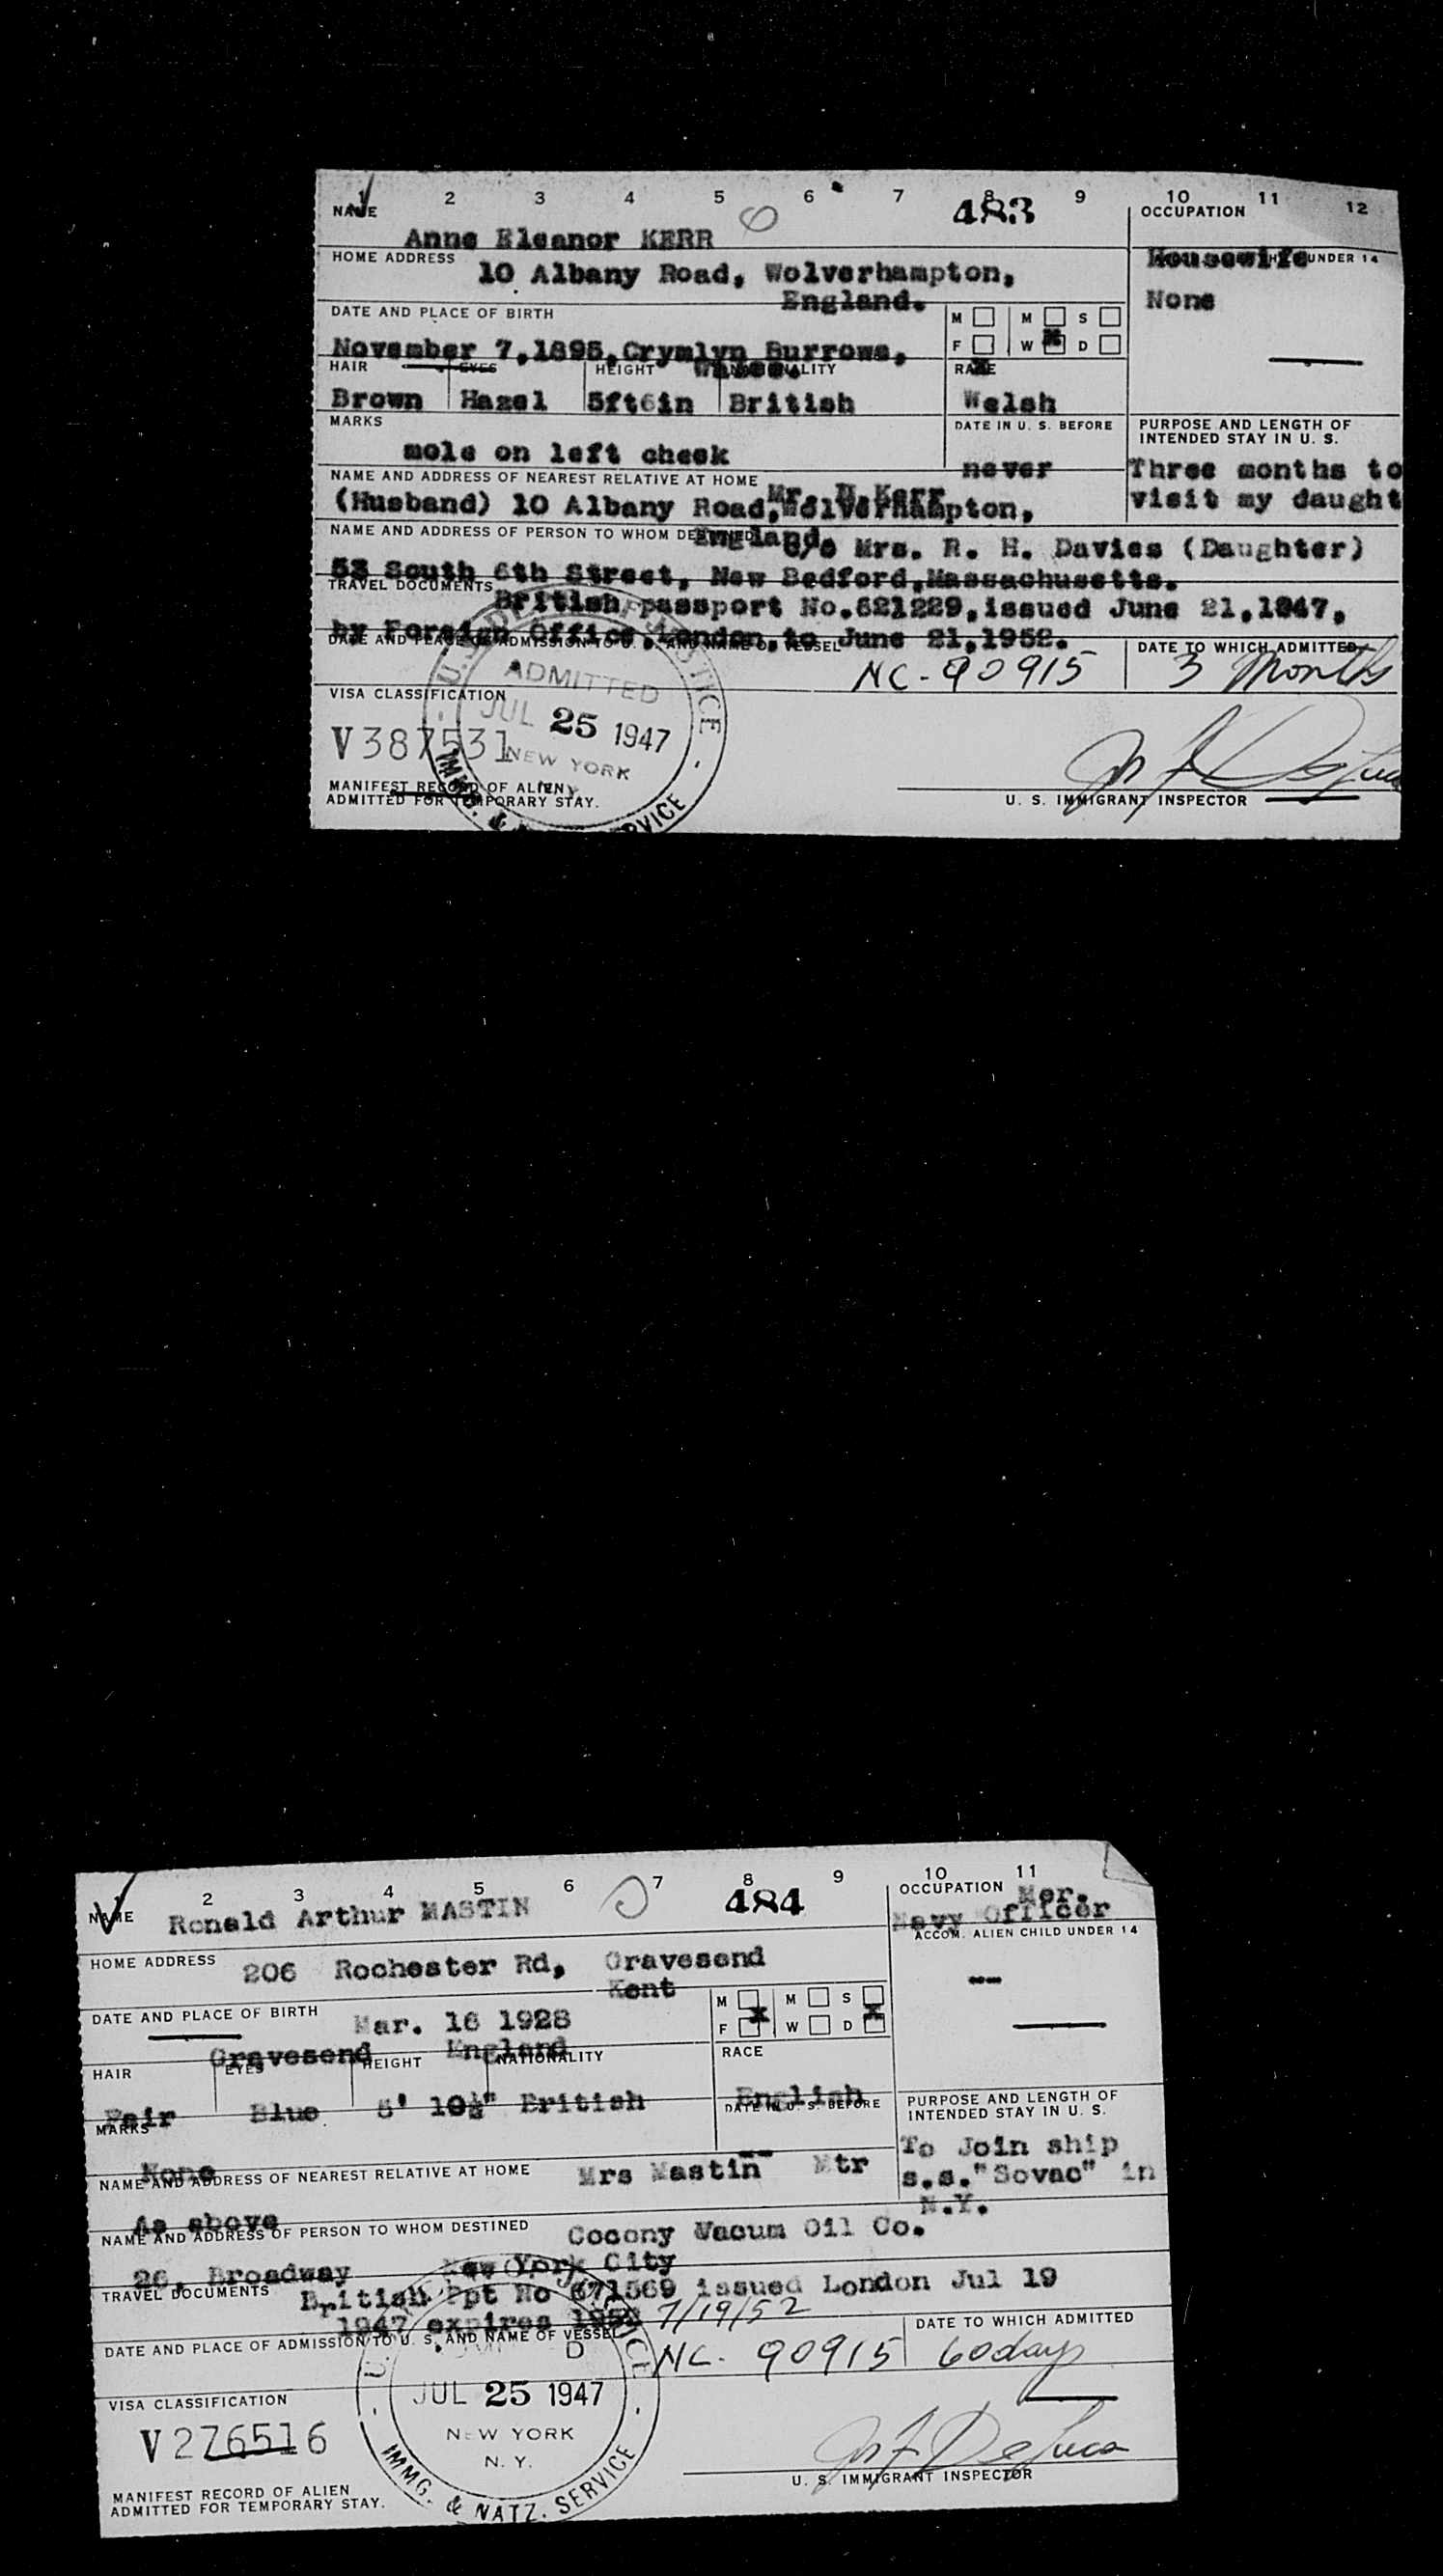 1 2 3 4 5 6 7 8 9 10 11 12
NAME 483 OCCUPATION
Anne Eleanor KERR Housewife
HOME ADDRESS 10 Albany Road, Wolverhampton, UNDER 14
England. None
DATE AND PLACE OF BIRTH M M S
November 7,1895,Crymlyn Burrows, F W D
Wales.
HAIR EYES HEIGHT NATIONALITY RACE
Brown Hazel 5ft6in British Welsh
MARKS DATE IN U. S. BEFORE PURPOSE AND LENGTH OF
INTENDED STAY IN U. S.
mole on left cheek never Three months to
NAME AND ADDRESS OF NEAREST RELATIVE AT HOME Mr. Kerr
(Husband) 10 Albany Road,Wolverhampton, visit my daught
England.
NAME AND ADDRESS OF PERSON TO WHOM DESTINED c/o Mrs. R. H. Davies (Daughter)
53 South 6th Street, New Bedford,Massachusetts.
TRAVEL DOCUMENTS British passport No.621229,issued June 21,1947,
by Foreign Office,London,to June 21,1952.
DATE AND PLACE OF ADMISSION TO U. S. AND NAME OF VESSEL DATE TO WHICH ADMITTED
NC-90915 3 Months
ADMITTED
VISA CLASSIFICATION
JUL 25 1947
V387531 NEW YORK
MANIFEST RECORD OF ALIEN
ADMITTED FOR TEMPORARY STAY.
U. S. IMMIGRANT INSPECTOR
IMMG. & SERVICE
1 2 3 4 5 6 7 8 9 10 11
NAME Ronald Arthur MASTIN 484 OCCUPATION Mer.
Navy Officer
ACCOM. ALIEN CHILD UNDER 14
HOME ADDRESS 206 Rochester Rd, Gravesend
Kent
DATE AND PLACE OF BIRTH Mar. 16 1928 M M S
F W D
Gravesend England
HAIR EYES HEIGHT NATIONALITY RACE
Fair Blue 5' 10½" British English
MARKS DATE IN U. S. BEFORE PURPOSE AND LENGTH OF
INTENDED STAY IN U. S.
None -- To Join ship
NAME AND ADDRESS OF NEAREST RELATIVE AT HOME Mrs Mastin Mtr s.s."Sovac" in
N.Y.
As above
NAME AND ADDRESS OF PERSON TO WHOM DESTINED Cocony Vacum Oil Co.
26, Broadway New York City
TRAVEL DOCUMENTS British Ppt No 671569 issued London Jul 19
1947 expires 1952 7/19/52
DATE AND PLACE OF ADMISSION TO U. S. AND NAME OF VESSEL DATE TO WHICH ADMITTED
NC. 90915 60 days
VISA CLASSIFICATION JUL 25 1947
V276516 NEW YORK
N. Y.
MANIFEST RECORD OF ALIEN
ADMITTED FOR TEMPORARY STAY.
U. S. IMMIGRANT INSPECTOR
IMMG. & NATZ. SERVICE